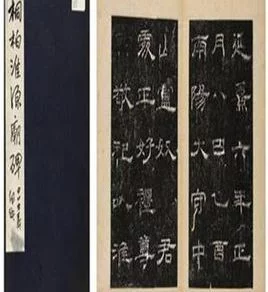 桐柏淮源廟碑
延熹六年正
月八日乙酉
南陽大守中
山盧奴君
處正好禮尊
敬祀以淮